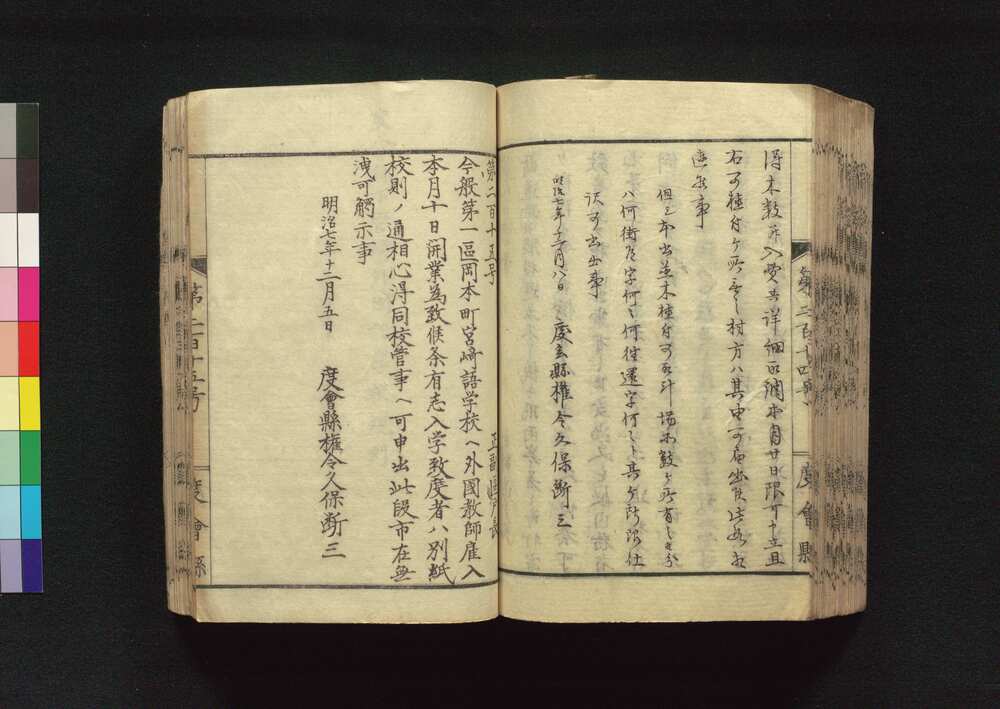 得木数并入費共詳細取調本月廿日限可申立且
右可種付ヶ所無之村方ハ其由可届出此段相
達候事
但シ
ハ何街道字何ゟ何往還字何々ト其ヶ所限仕
訳可出出事
明治七年十二月八日 度會縣権令久保断三
第二百十四号 度會縣
第二百十五号 正副區戸長
今般第一區岡本町宮崎語学校ヘ外國教師雇入
本月十日開業為致候条有志入学致度者ハ別紙
校則ノ通相心得同校管事ヘ可申出此段市在無
洩可觸示事
明治七年十二月五日 度會縣権令久保断三
第二百十五号 度會縣